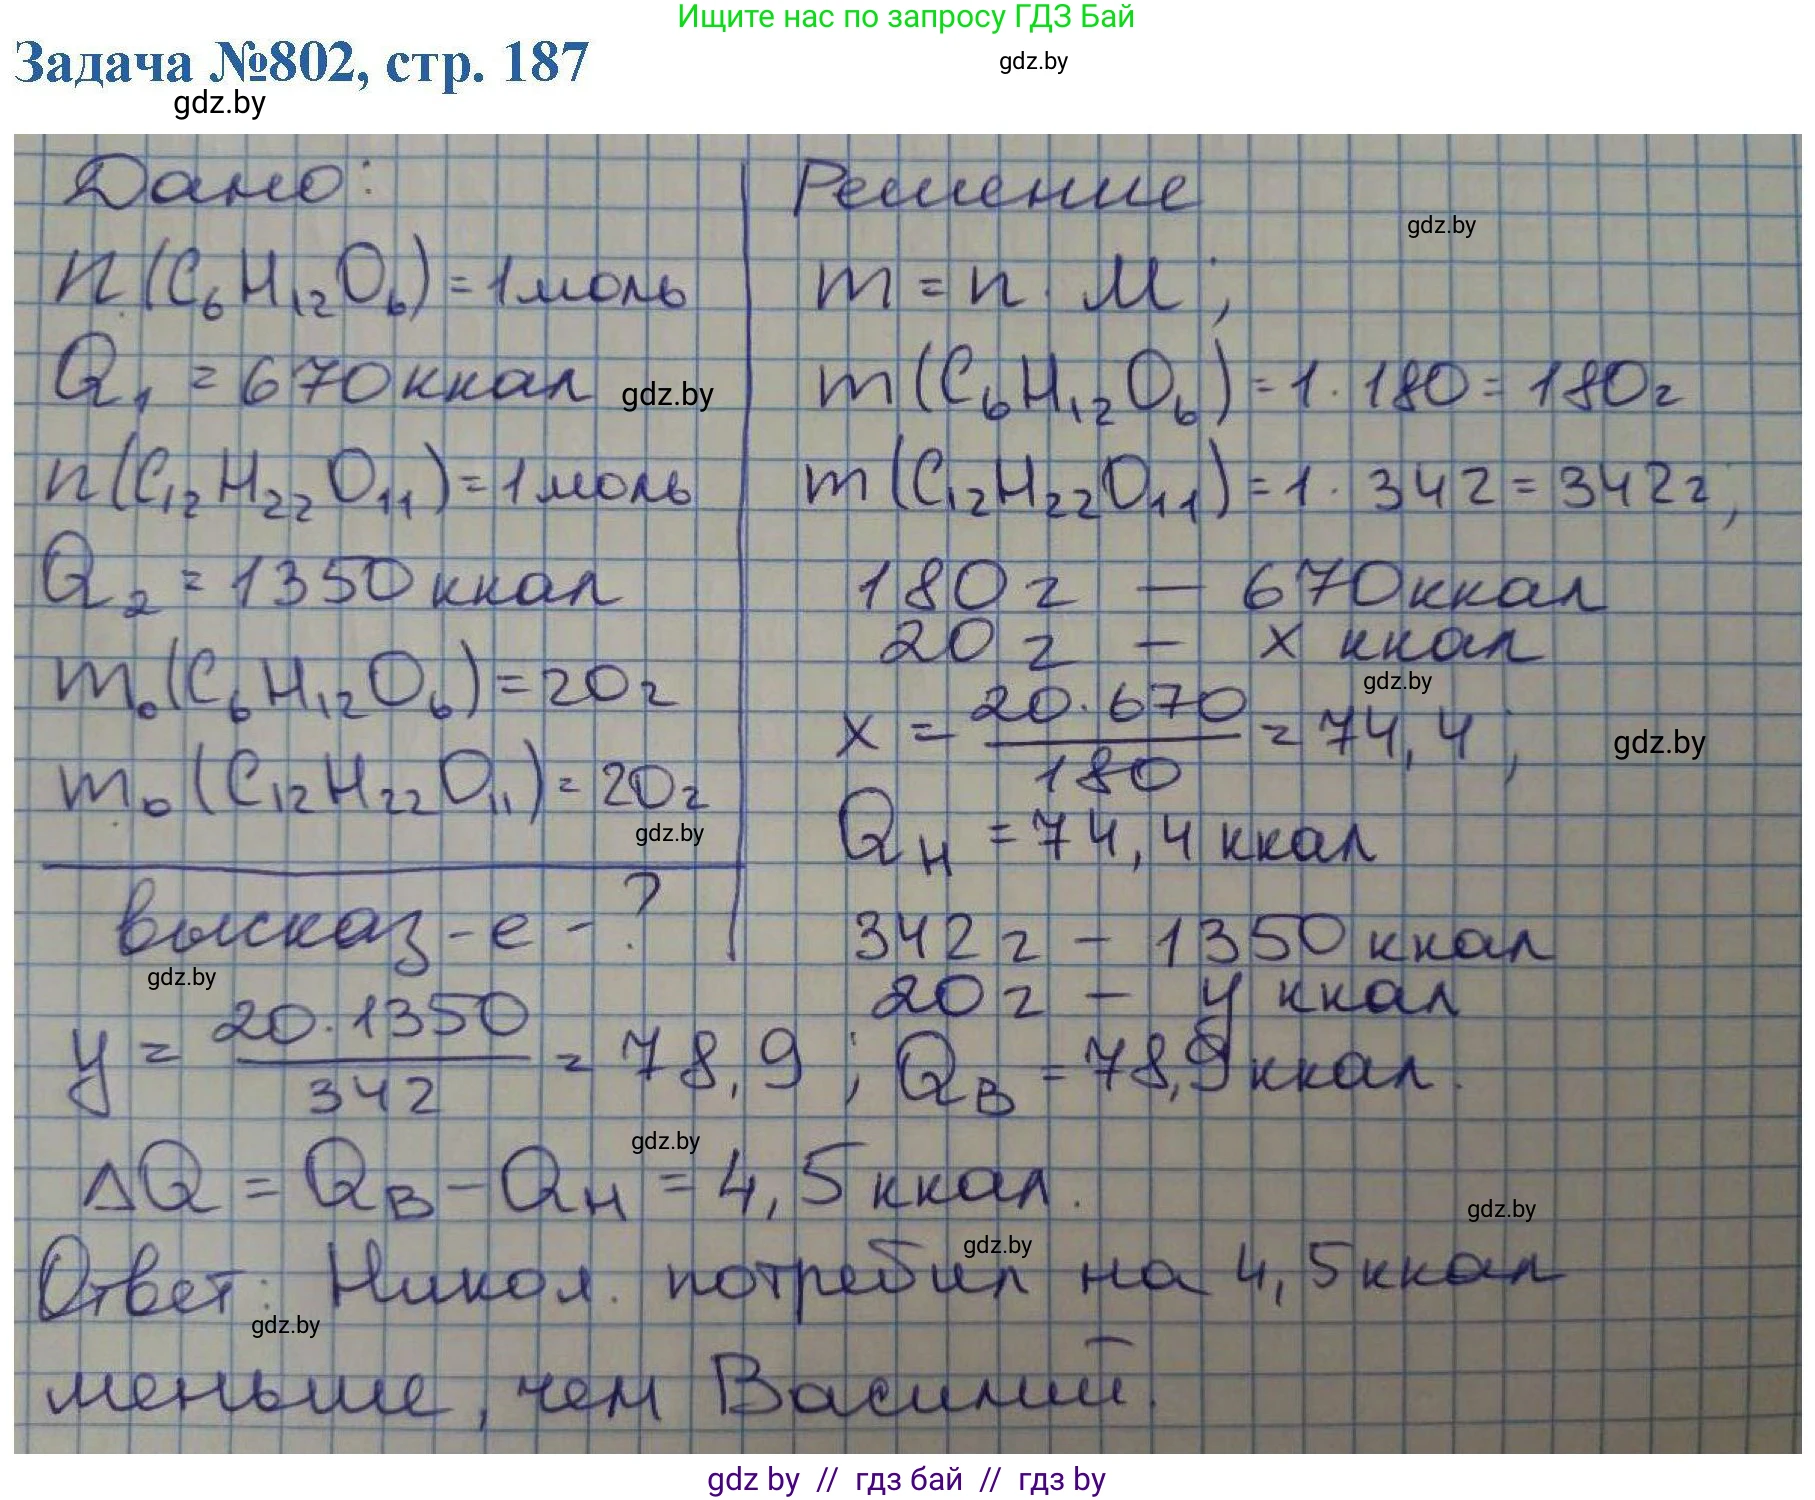 Ищите нас по запросу ГДЗ Бай
Задача №802, стр. 187
gdz.by
gdz.by
Дано:
n(C₆H₁₂O₆) = 1 моль
Q₁ = 670 ккал
gdz.by
n(C₁₂H₂₂O₁₁) = 1 моль
Q₂ = 1350 ккал
m₀(C₆H₁₂O₆) = 20 г
m₀(C₁₂H₂₂O₁₁) = 20 г
gdz.by
высказ-е - ?
gdz.by
Решение
gdz.by
m = n · M;
m(C₆H₁₂O₆) = 1 · 180 = 180 г
m(C₁₂H₂₂O₁₁) = 1 · 342 = 342 г;
180 г — 670 ккал
20 г — x ккал
gdz.by
x = 20·670 / 180 = 74,4;
gdz.by
Qн = 74,4 ккал
342 г — 1350 ккал
20 г — y ккал
y = 20·1350 / 342 = 78,9; Qв = 78,9 ккал.
gdz.by
ΔQ = Qв - Qн = 4,5 ккал.
gdz.by
gdz.by
Ответ: Никол. потребил на 4,5 ккал
gdz.by
меньше, чем Василий.
gdz by // гдз бай // гдз by